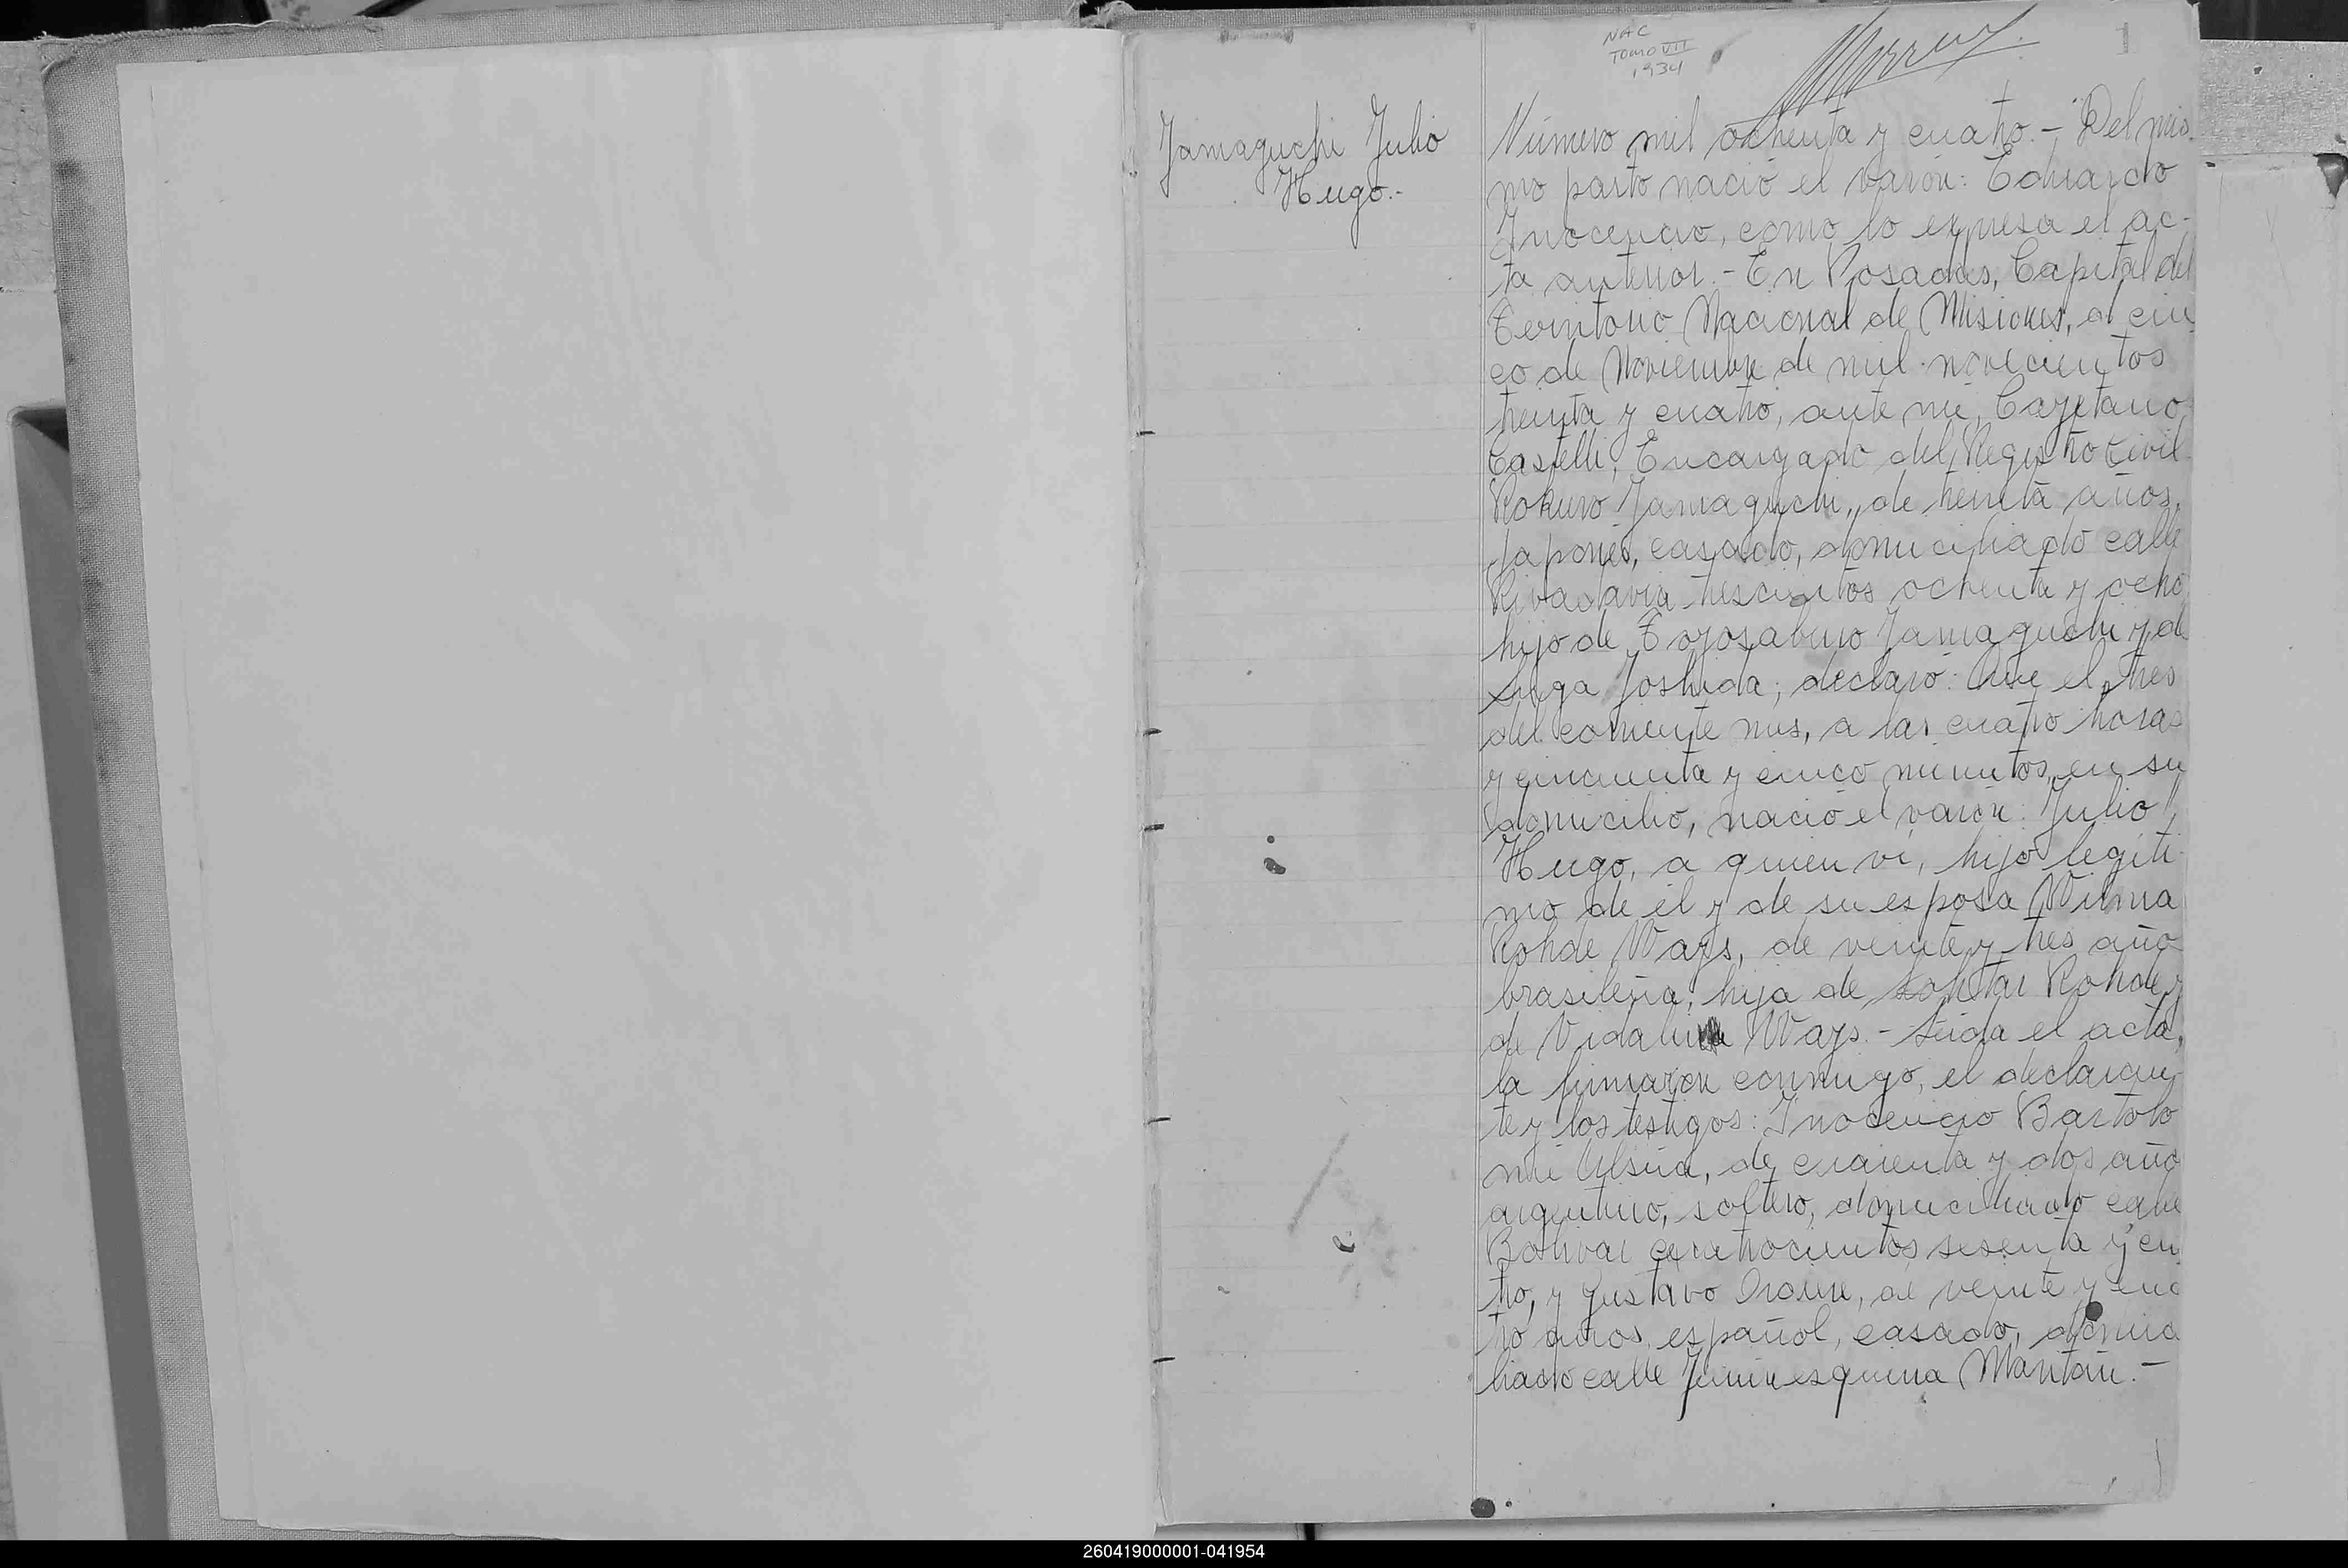 NAC
TOMO VII
1934
1
Yamaguchi Julio
Hugo.-
Número mil ochenta y cuatro.- Del mis-
mo parto nació el varón: Eduardo
Inocencio, como lo expresa el ac-
ta anterior.- En Posadas, Capital del
Territorio Nacional de Misiones, a cin
co de Noviembre de mil novecientos
treinta y cuatro, ante mi, Cayetano
Castelli, Encargado del Registro Civil
Rokuro Yamaguchi, de treinta años,
japonés, casado, domiciliado calle
Rivadavia trescientos ochenta y ocho
hijo de Yamaguchi y de
Suga Joshida; declaró: Que el tres
del corriente mes, a las cuatro horas
y cincuenta y cinco minutos, en su
domicilio, nació el varón: Julio
Hugo, a quien vi, hijo legíti-
mo de él y de su esposa Wilma
Rohde Ways, de veinte y tres año
brasileña; hija de Rohde y
de Ways.- Leida el acta,
la firmaron conmigo, el declaran-
te y los testigos: Inocencio Bartolo
mé de cuarenta y dos año
argentino, soltero, domiciliado calle
Bolivar cuatrocientos sesenta y cu
tro, y Gustavo de veinte y cua
tro años, español, casado, domici
liado calle Junin esquina
260419000001-041954